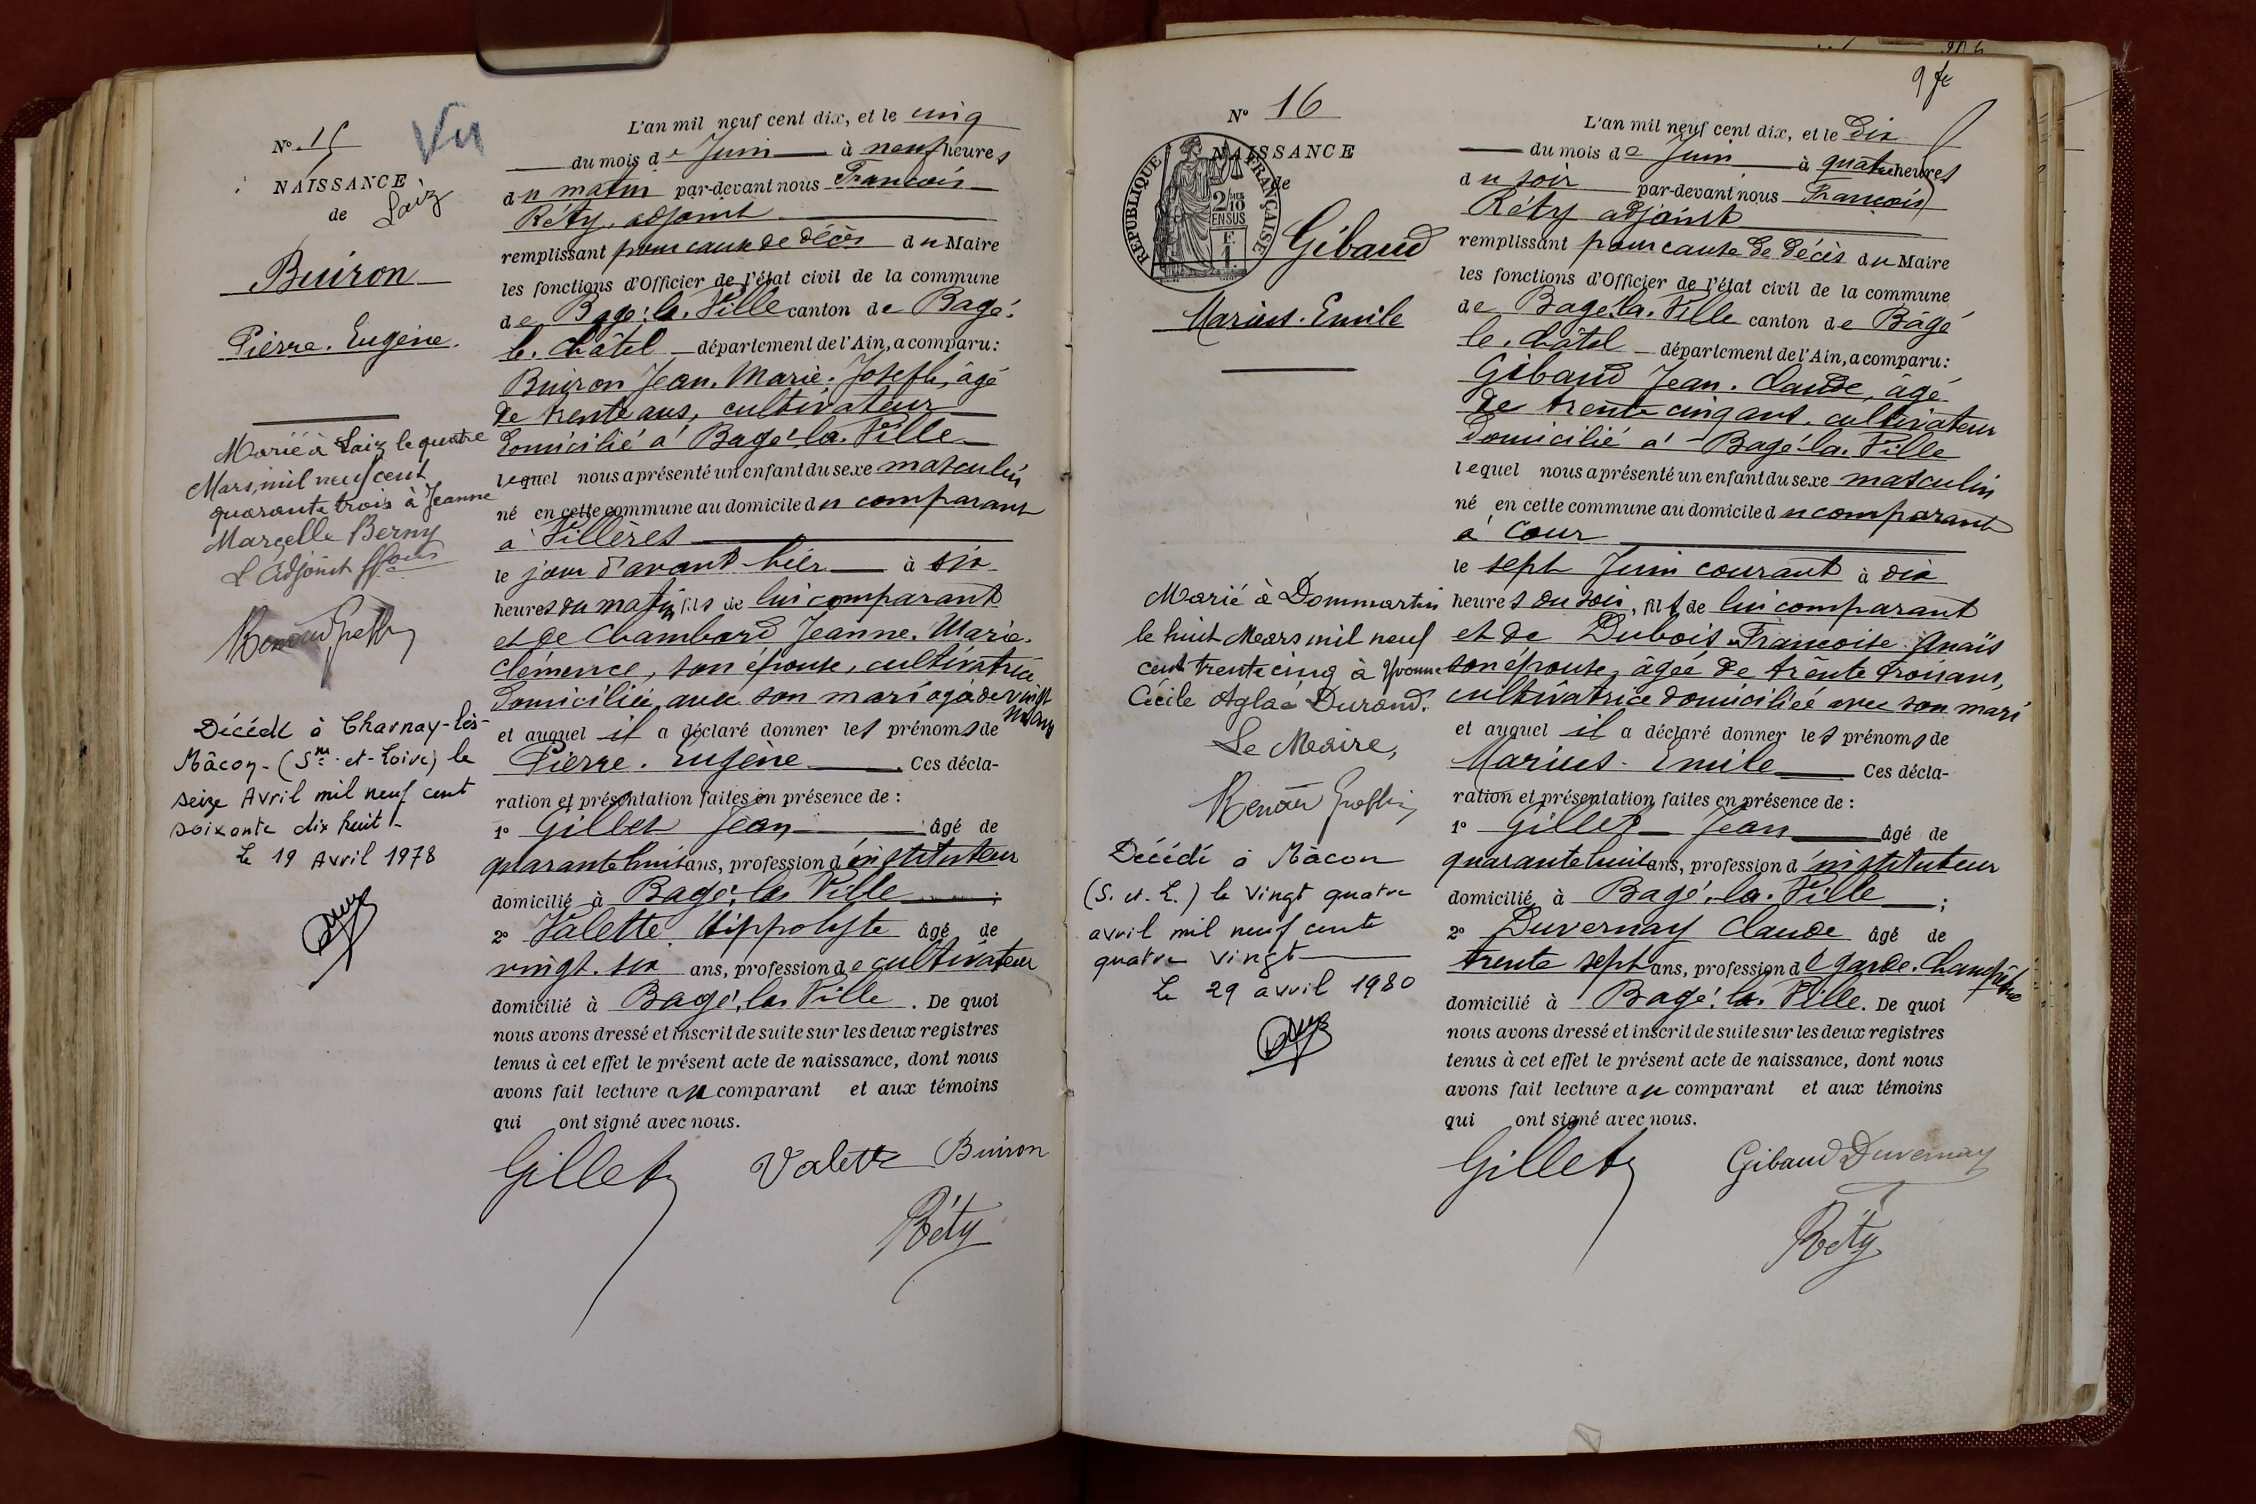 Nº 15
Vu
NAISSANCE
de
Laiz
Buiron
Pierre. Eugène.
Marié à Laiz le quatre
Mars, mil neuf cent
quarante trois à Jeanne
Marcelle Berny
L'adjoint
Décédé à Charnay-lès-
Mâcon - (Sne-et-Loire) le
seize Avril mil neuf cent
soixante dix huit -
Le 19 Avril 1978
L'an mil neuf cent dix, et le cinq
du mois de Juin à neuf heures
du matin par-devant nous François
Réty, adjoint
remplissant pour cause de décès du Maire
les fonctions d'Officier de l'état civil de la commune
de Bagé-la-Ville canton de Bagé-
le-Châtel département de l'Ain, a comparu:
Buiron Jean. Marie. Joseph, âgé
de trente ans, cultivateur
domicilié à Bagé-la-Ville
lequel nous a présenté un enfant du sexe masculin
né en cette commune au domicile du comparant
à Villères
le jour d'avant-hier à six
heures du matin, fils de lui comparant
et de Chambard Jeanne. Marie.
Clémence, son épouse, cultivatrice
domiciliée avec son mari agée de vingt
six ans
et auquel il a déclaré donner les prénoms de
Pierre. Eugène Ces décla-
ration et présentation faites en présence de :
1º Gillet Jean âgé de
quarante huit ans, profession d'instituteur
domicilié à Bagé-la-Ville ;
2º Valette Hippolyte âgé de
vingt-six ans, profession de cultivateur
domicilié à Bagé-la-Ville. De quoi
nous avons dressé et inscrit de suite sur les deux registres
tenus à cet effet le présent acte de naissance, dont nous
avons fait lecture au comparant et aux témoins
qui ont signé avec nous.
Gillet Valette Buiron
Réty
9 fe
Nº 16
NAISSANCE
de
RÉPUBLIQUE FRANÇAISE
2/10 EN SUS
Gibaud
Marius. Emile
Marié à Dommartin
le huit Mars mil neuf
cent trente cinq à Yvonne
Cécile Aglaé Durand.
Le Maire,
Décédé à Mâcon
(S. et. L.) le vingt quatre
avril mil neuf cent
quatre vingt
Le 29 avril 1980
L'an mil neuf cent dix, et le dix
du mois de Juin à quatre heures
du soir par-devant nous François
Réty adjoint
remplissant pour cause de décès du Maire
les fonctions d'Officier de l'état civil de la commune
de Bagé-la-Ville canton de Bâgé
le-Châtel département de l'Ain, a comparu:
Gibaud Jean. Claude, âgé
de trente cinq ans, cultivateur
domicilié à Bagé-la-Ville
lequel nous a présenté un enfant du sexe masculin
né en cette commune au domicile du comparant
à Cour
le sept Juin courant à dix
heures du soir, fils de lui comparant
et de Dubois Françoise Anaïs
son épouse, âgée de trente trois ans,
cultivatrice domiciliée avec son mari
et auquel il a déclaré donner les prénoms de
Marius. Emile Ces décla-
ration et présentation faites en présence de :
1º Gillet Jean âgé de
quarante huit ans, profession d'instituteur
domicilié à Bagé-la-Ville ;
2º Duvernay Claude âgé de
trente sept ans, profession de garde. champêtre
domicilié à Bagé-la-Ville. De quoi
nous avons dressé et inscrit de suite sur les deux registres
tenus à cet effet le présent acte de naissance, dont nous
avons fait lecture au comparant et aux témoins
qui ont signé avec nous.
Gillet Gibaud Duvernay
Réty